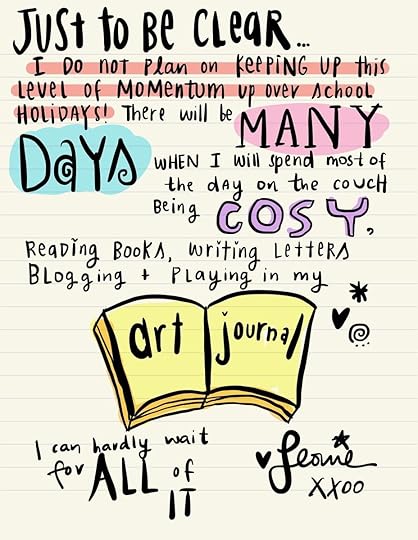 JUST TO BE CLEAR...
I DO NOT PLAN ON KEEPING UP THIS
LEVEL OF MOMENTUM UP OVER SCHOOL
HOLIDAYS! There will be MANY
DAYS WHEN I will spend most of
the day on the couch
Being COSY,
READING BOOKS, WRITING LETTERS
BLOGGING + PLAYING IN MY
art journal
I can hardly wait
for ALL of
IT
Leonie
XXOO